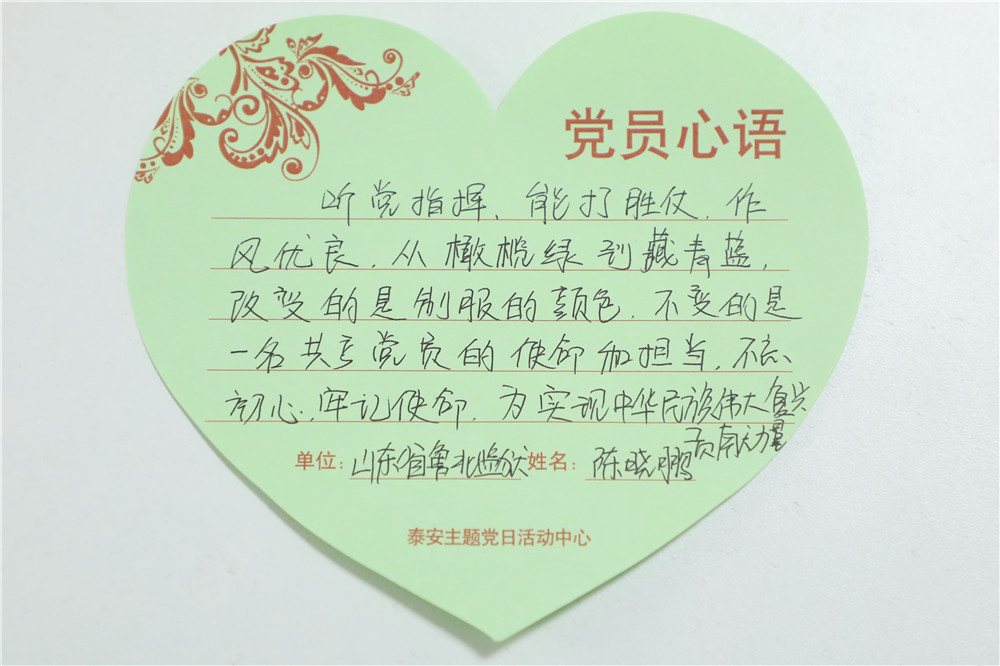 党员心语
听党指挥、能打胜仗、作
风优良，从橄榄绿到藏青蓝，
改变的是制服的颜色，不变的是
一名共产党员的使命和担当，不忘
初心，牢记使命，为实现中华民族伟大复兴
贡献力量
单位：山东省鲁北监狱 姓名：陈晓鹏
泰安主题党日活动中心